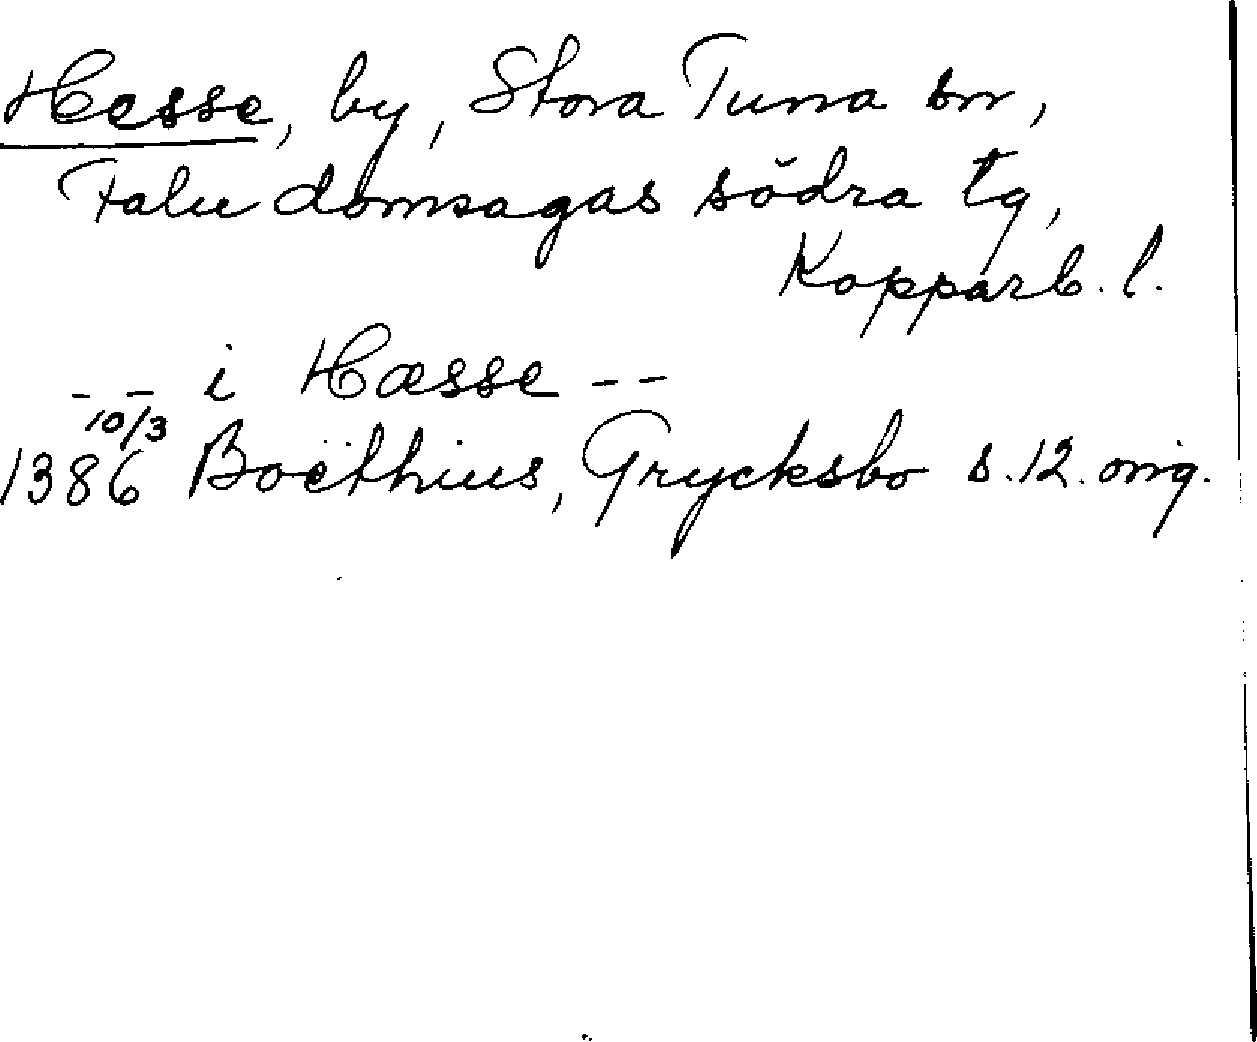 Hesse, by, Stora Tuna sn,
Falu domsagas södra tg,
Kopparb. l.
-- i Hæsse --
10/3
1386 Boëthius, Grycksbo s. 12. orig.